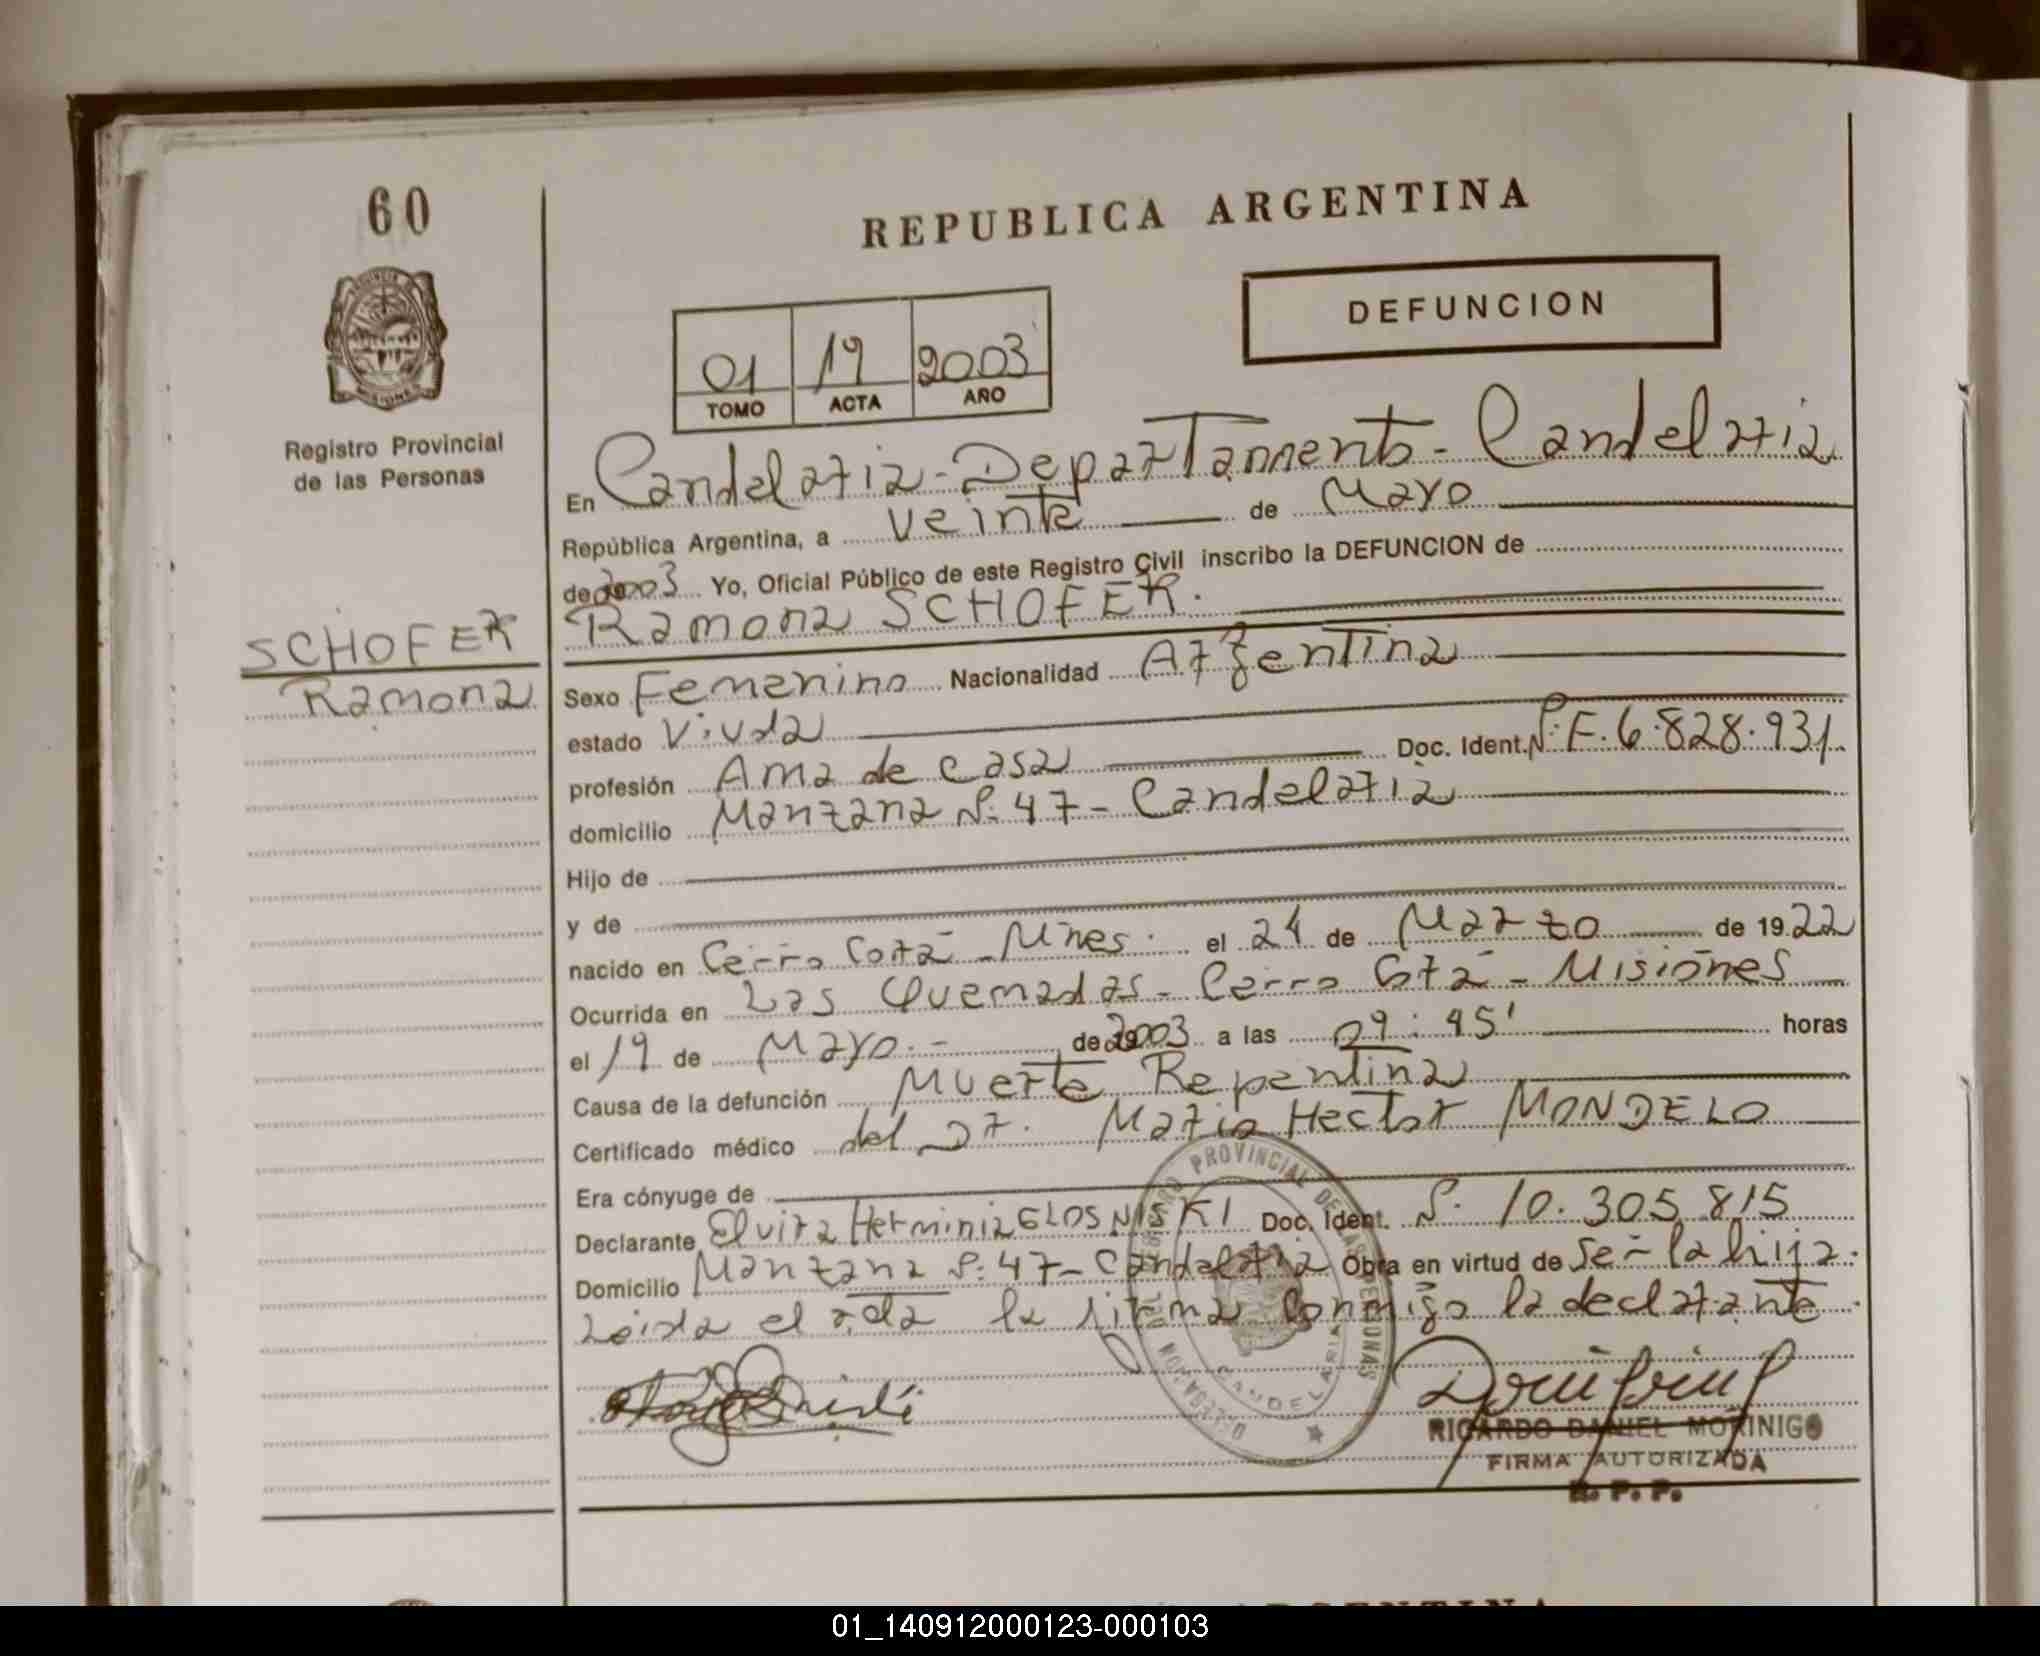 60
REPUBLICA ARGENTINA
DEFUNCION
01 19 2003
TOMO ACTA AÑO
Registro Provincial
de las Personas
En Candelaria - Departamento - Candelaria
República Argentina, a veinte de Mayo
de 2003 Yo, Oficial Público de este Registro Civil inscribo la DEFUNCION de
Ramona SCHOFER.
SCHOFER
Ramona
Sexo Femenino Nacionalidad Argentina
estado Viuda
profesión Ama de casa Doc. Ident. Nº F. 6.828.931.
domicilio Manzana Nº 47 - Candelaria
Hijo de
y de
nacido en Cerro Corá - Mnes. el 24 de Marzo de 1922
Ocurrida en Las Quemadas - Cerro Corá - Misiones
el 19 de Mayo.- de 2003 a las 09:45' horas
Causa de la defunción Muerte Repentina
Certificado médico del Dr. Mario Hector MONDELO
Era cónyuge de
Declarante Elvira Herminia GLOSNISKI Doc. Ident. Nº 10.305.815
Domicilio Manzana Nº 47 - Candelaria Obra en virtud de Ser la hija.
Leida el acta la firma conmigo la declarante.
DELEGACION DEL REGISTRO PROVINCIAL DE LAS PERSONAS
CANDELARIA
RICARDO DANIEL MORINIGO
FIRMA AUTORIZADA
R. P. P.
ARGENTINA
01_140912000123-000103